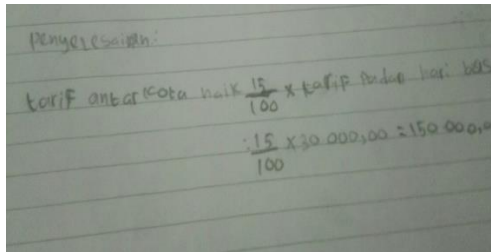 Penyelesaian:
tarif antar kota naik 15/100 x tarif Pada hari
: 15/100 x 30 000,00 = 150 000,0